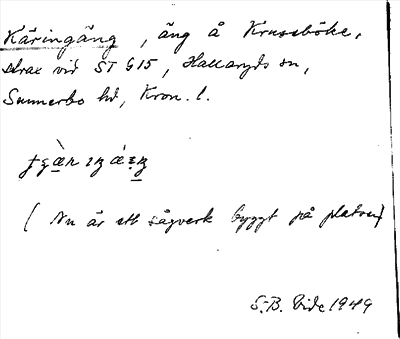 Käringäng, äng å Krussböke,
strax vid ST G15, Hallaryds sn,
Sunnerbo hd, Kron. l.
( Nu är ett sågverk byggt på platsen)
S.B. Vide 1949